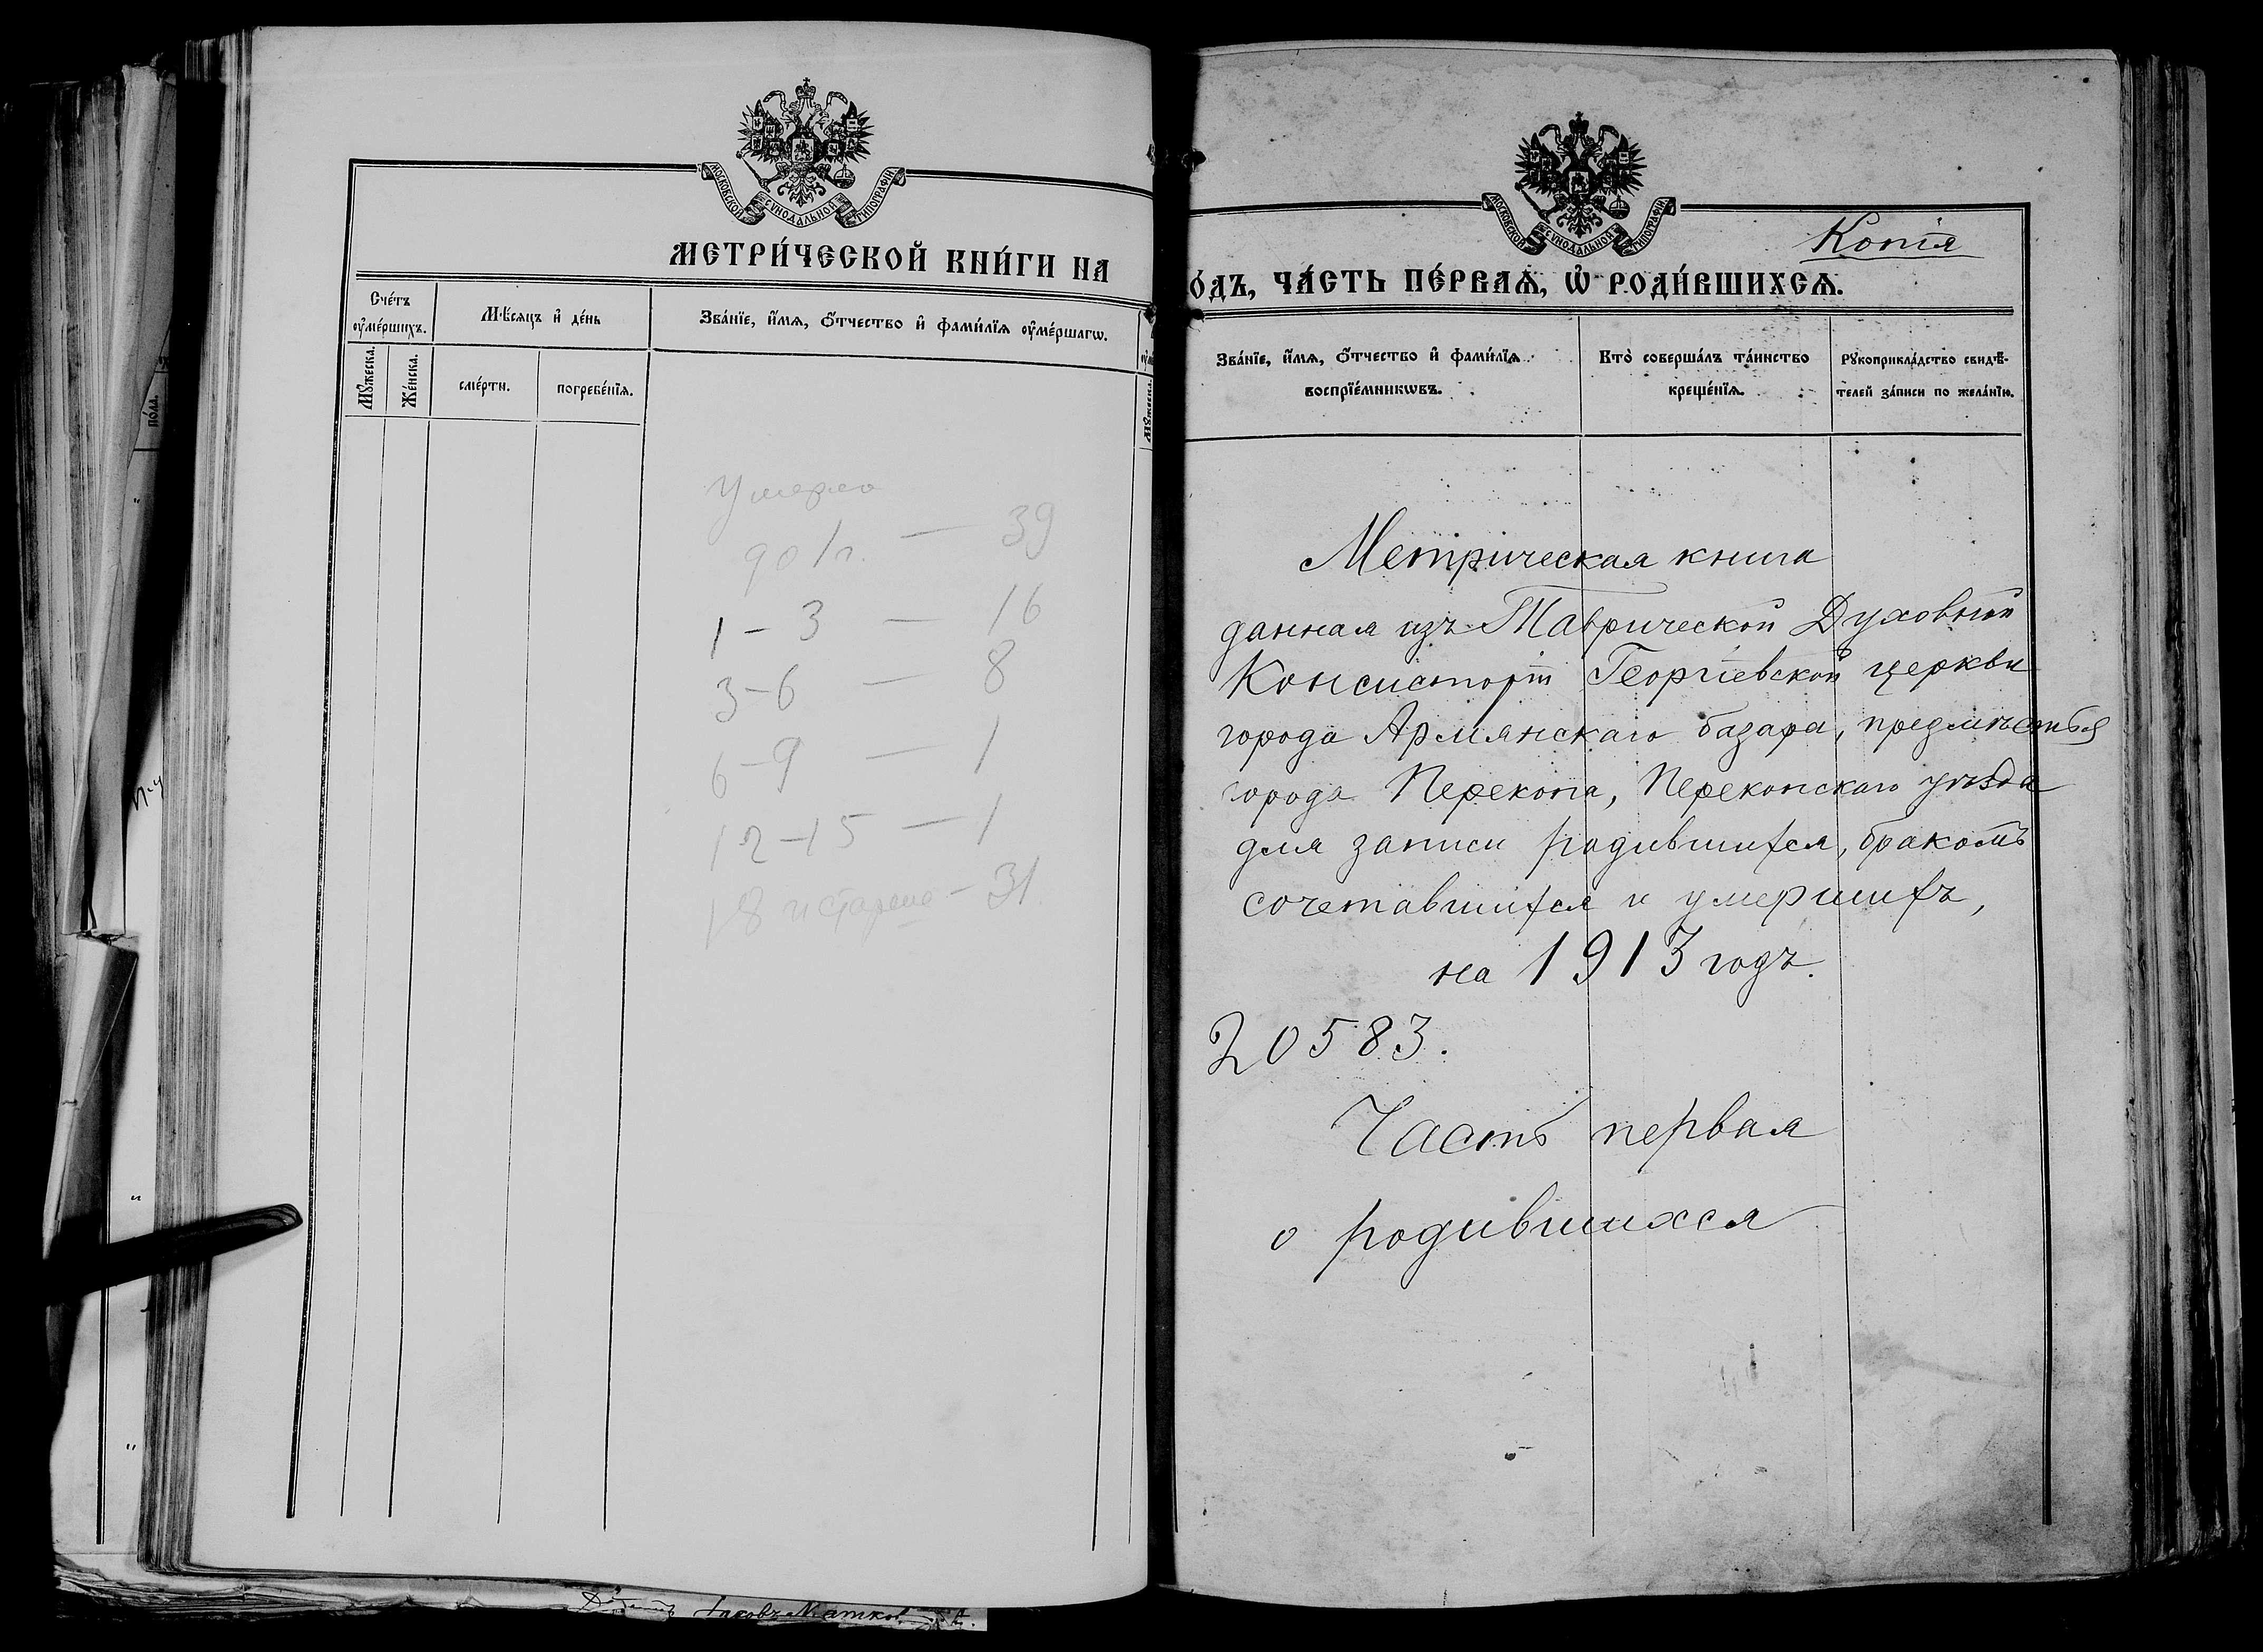 МОСКОВСКОЙ СѴНОДАЛЬНОЙ ТИПОГРАФІИ
МЕТРИ́ЧЕСКОЙ КНИ́ГИ НА
Сче́тъ ᲂу҆ме́ршихъ.
Мѣ́сяцъ и҆ де́нь
Зва́нїе, и҆́мѧ, ѻ҆́тчество и҆ фами́лїѧ ᲂу҆ме́ршагѡ.
Мꙋ́жеска.
Же́нска.
сме́рти.
погребе́нїѧ.
Умерло
до 1 г. — 39
1 – 3 — 16
3 – 6 — 8
6 – 9 — 1
12 – 15 — 1
18 и старше – 31.
МОСКОВСКОЙ СѴНОДАЛЬНОЙ ТИПОГРАФІИ
Копія
о́дъ, ЧА́СТЬ ПЕ́РВАѦ, Ѡ҆ РОДИ́ВШИХСѦ.
Зва́нїе, и҆́мѧ, ѻ҆́тчество и҆ фами́лїѧ
воспрїе́мникѡвъ.
Кто̀ соверша́лъ та́инство
креще́нїѧ.
Рꙋкоприкла́дство свидѣ́-
телей за́писи по жела́нїю.
Метрическая книга
данная изъ Таврической Духовной
Консисторіи Георгіевской церкви
города Армянскаго базара, предмѣстья
города Перекопа, Перекопскаго уѣзда
для записи родившихся, бракомъ
сочетавшихся и умершихъ,
на 1913 годъ.
20583.
Часть первая
о родившихся